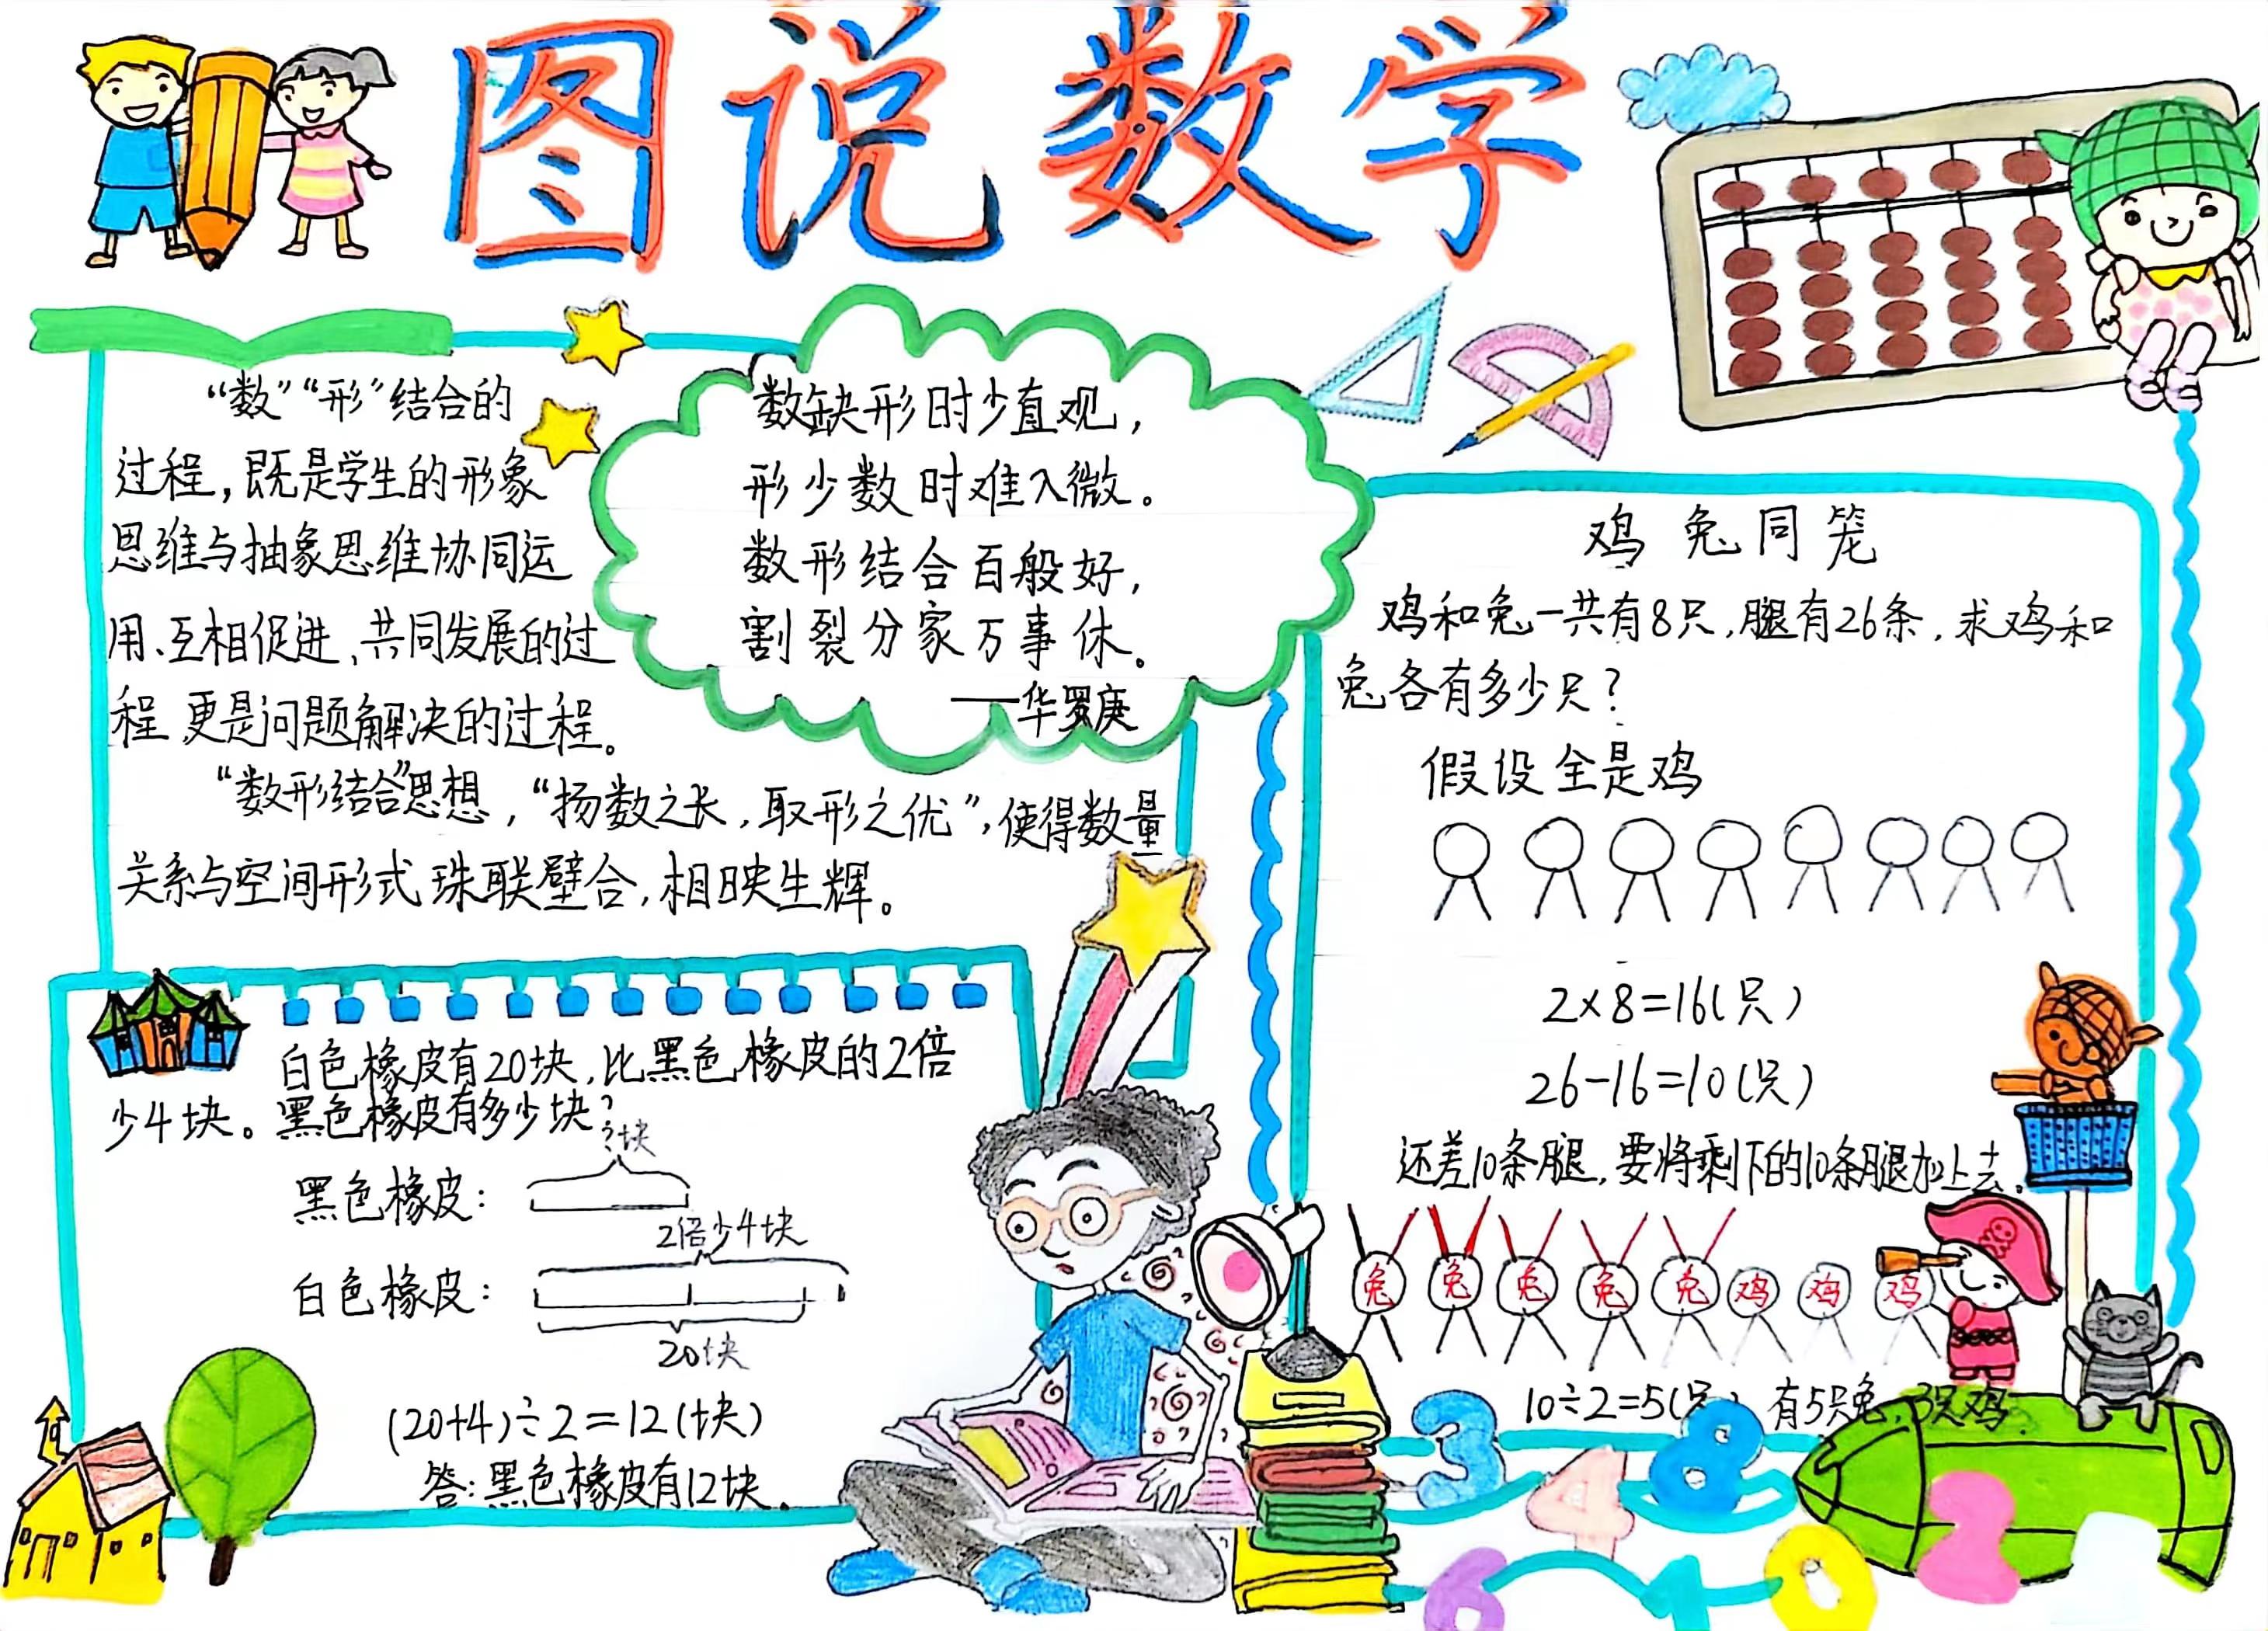 图说数学
“数”“形”结合的
过程，既是学生的形象
思维与抽象思维协同运
用、互相促进、共同发展的过
程，更是问题解决的过程。
“数形结合”思想，“扬数之长，取形之优”，使得数量
关系与空间形式珠联璧合，相映生辉。
数缺形时少直观，
形少数时难入微。
数形结合百般好，
割裂分家万事休。
——华罗庚
白色橡皮有20块，比黑色橡皮的2倍
少4块。黑色橡皮有多少块？
?块
黑色橡皮：
2倍少4块
白色橡皮：
20块
(20+4)÷2=12(块)
答：黑色橡皮有12块。
鸡兔同笼
鸡和兔一共有8只，腿有26条，求鸡和
兔各有多少只？
假设全是鸡
2×8=16(只)
26-16=10(只)
还差10条腿，要将剩下的10条腿加上去。
兔 兔 兔 兔 兔 鸡 鸡 鸡
10÷2=5(只) 有5只兔，3只鸡
3 4 8
6 1 0 2